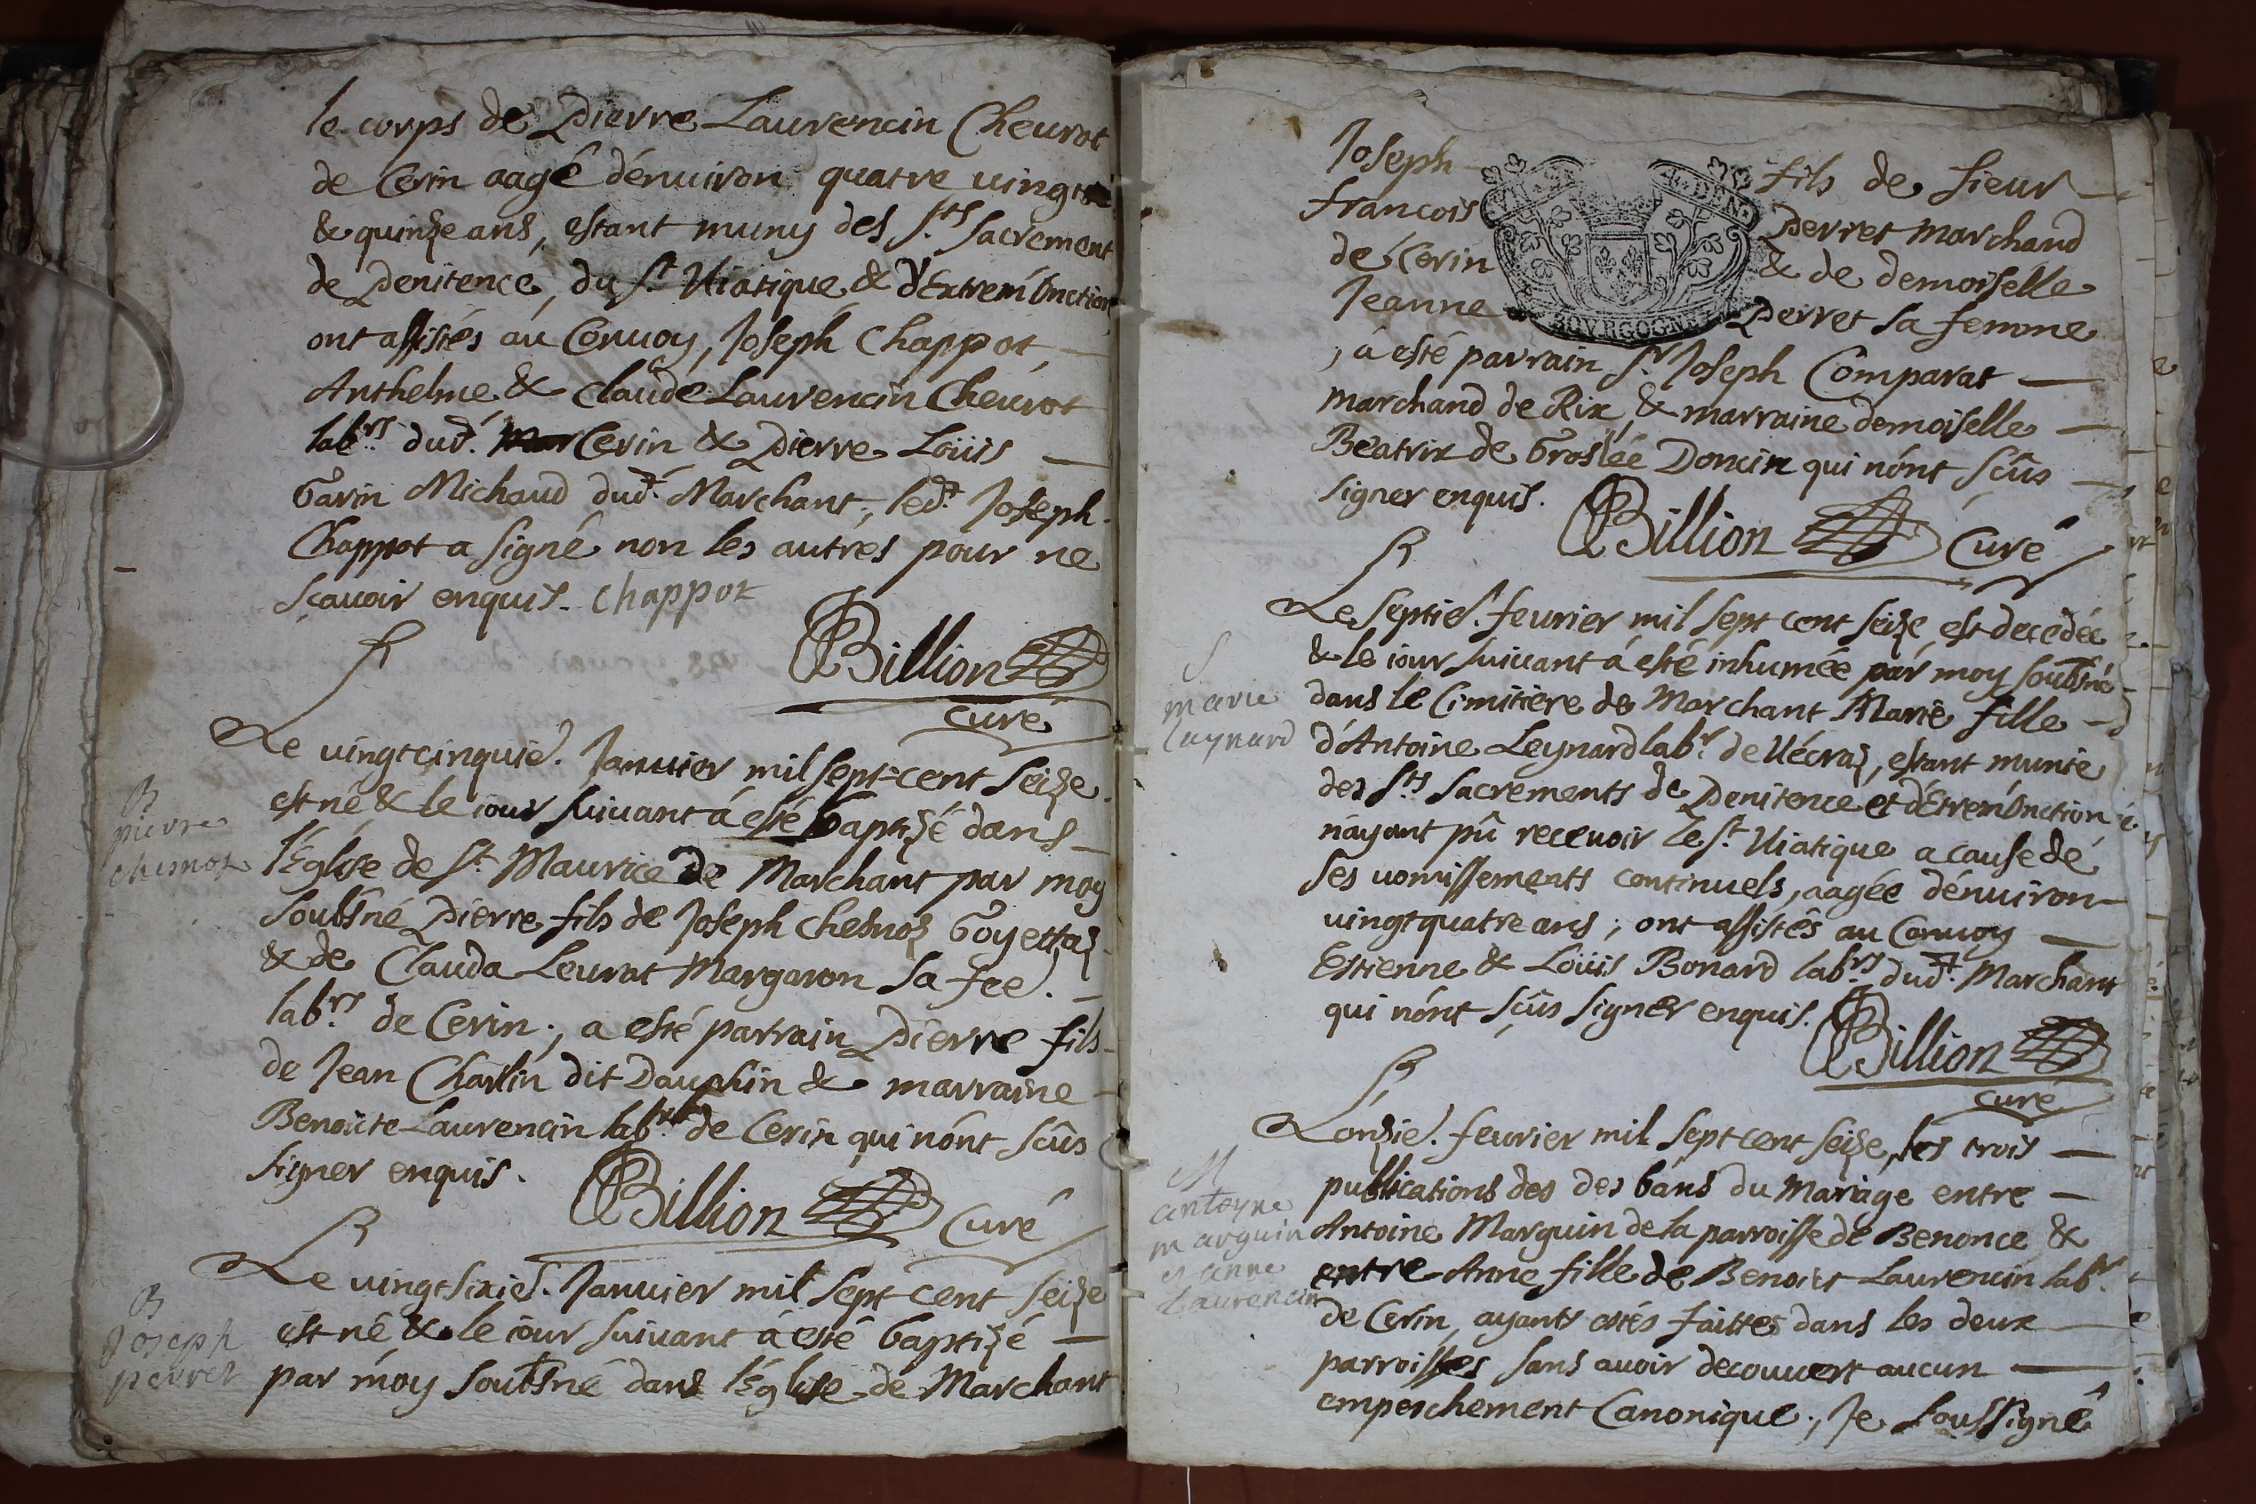 le corps de Pierre Laurencin Cheurot
de Cerin aagé d'enuiron quatre uingts
& quinze ans, estant muny des Sts. Sacrement
de Penitence, du St. Uiatique & d'Extrem'Onction
ont assistés au Conuoy, Joseph Chappot
Anthelme & Claude Laurencin Cheurot
labrs. dud. Cerin & Pierre Loüis
Garin Michaud dudt. Marchant, ledt. Joseph
Chappot a signé non les autres pour ne
sçauoir enquis. Chappot
Billion
curé
Le uingtcinquie. Januier mil sept-cent seize
est né & le iour suiuant a esté baptizé dans
l'Eglise de St. Maurice de Marchant par moy
soubsné Pierre fils de Joseph Chesnoz Goyettaz
& de Clauda Leurat Margaron sa fee.
labrs. de Cerin; a esté parrain Pierre fils
de Jean Charlin dit Dauphin & marraine
Benoite Laurencin de Cerin qui n'ont sçûs
signer enquis.
Billion Curé
Le uingtsixie. Januier mil sept cent seize
est né & le iour suiuant a esté baptizé
par moy soubsné dans l'Eglise de Marchant
B
pierre
B
Joseph
perret
Joseph fils de sieur
francois Perret marchand
de Cerin & de demoiselle
Jeanne Perret sa femme
BOVRGOGNE
, a esté parrain Sr. Joseph Comparat
marchand de Rix & marraine demoiselle
Beatrix de Groslée Doncin qui n'ont sçûs
signer enquis.
Billion Curé
Le septie. feurier mil sept cent seize est decedée
& le iour suiuant a esté inhumée par moy soubsné
dans le Cimitiere de Marchant Marie fille
d'Antoine Leynard labr. de Uécraz, estant munie
des Sts. Sacrements de Penitence et d'Etrem'Onction
n'ayant pû receuoir le St. Uiatique a cause de
ses uomissements continuels, aagée d'enuiron
uingtquatre ans; ont assistés au Conuoy
Estienne & Loüis Bonard labrs. dudt. Marchant
qui n'ont sçûs signer enquis.
Billion
curé
L'onzie. feurier mil sept cent seize, les trois
publications des des bans du Mariage entre
Antoine Marguin de la parroisse de Benonce &
entre Anne fille de Benoist Laurencin labr.
de Cerin, ayants estés faittes dans les deux
parroisses sans auoir decouuert aucun
empeschement Canonique; Je soussigné
S
marie
Laynard
M
antoyne
marguin
et anne
Laurencin